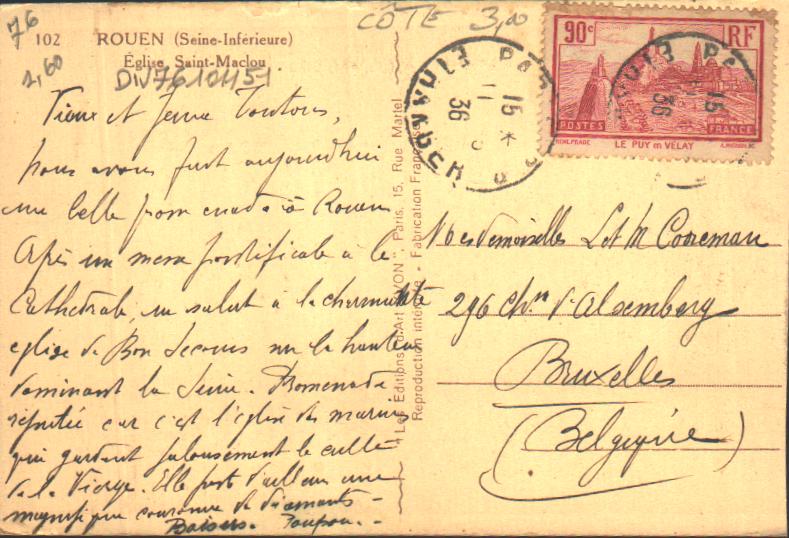 76
102 ROUEN (Seine-Inférieure)
Église Saint-Maclou
2,60
DIV7610451
CÔTE 3,00
90c
RF
POSTES
FRANCE
LE PUY EN VELAY
15
36
Vieux et Jeune Toutous,
Nous avons fait aujourd'hui
une belle promenade à Rouen
Après un messe pontificale à la
Cathédrale, un salut à la charmante
eglise de Bon Secours sur la hauteur
dominant la Seine. Promenade
réputée car c'est l'église des marins
qui gardent jalousement le culte
de la Vierge. Elle porte d'ailleurs une
magnifique couronne de diamants -
Baisers. Poupou.-
"Les Éditions d'Art "YVON", Paris, 15, Rue Martel
Reproduction interdite - Fabrication Française
Mesdemoiselles L et M Cooreman
296 Chée d'Alsemberg
Bruxelles
(Belgique)